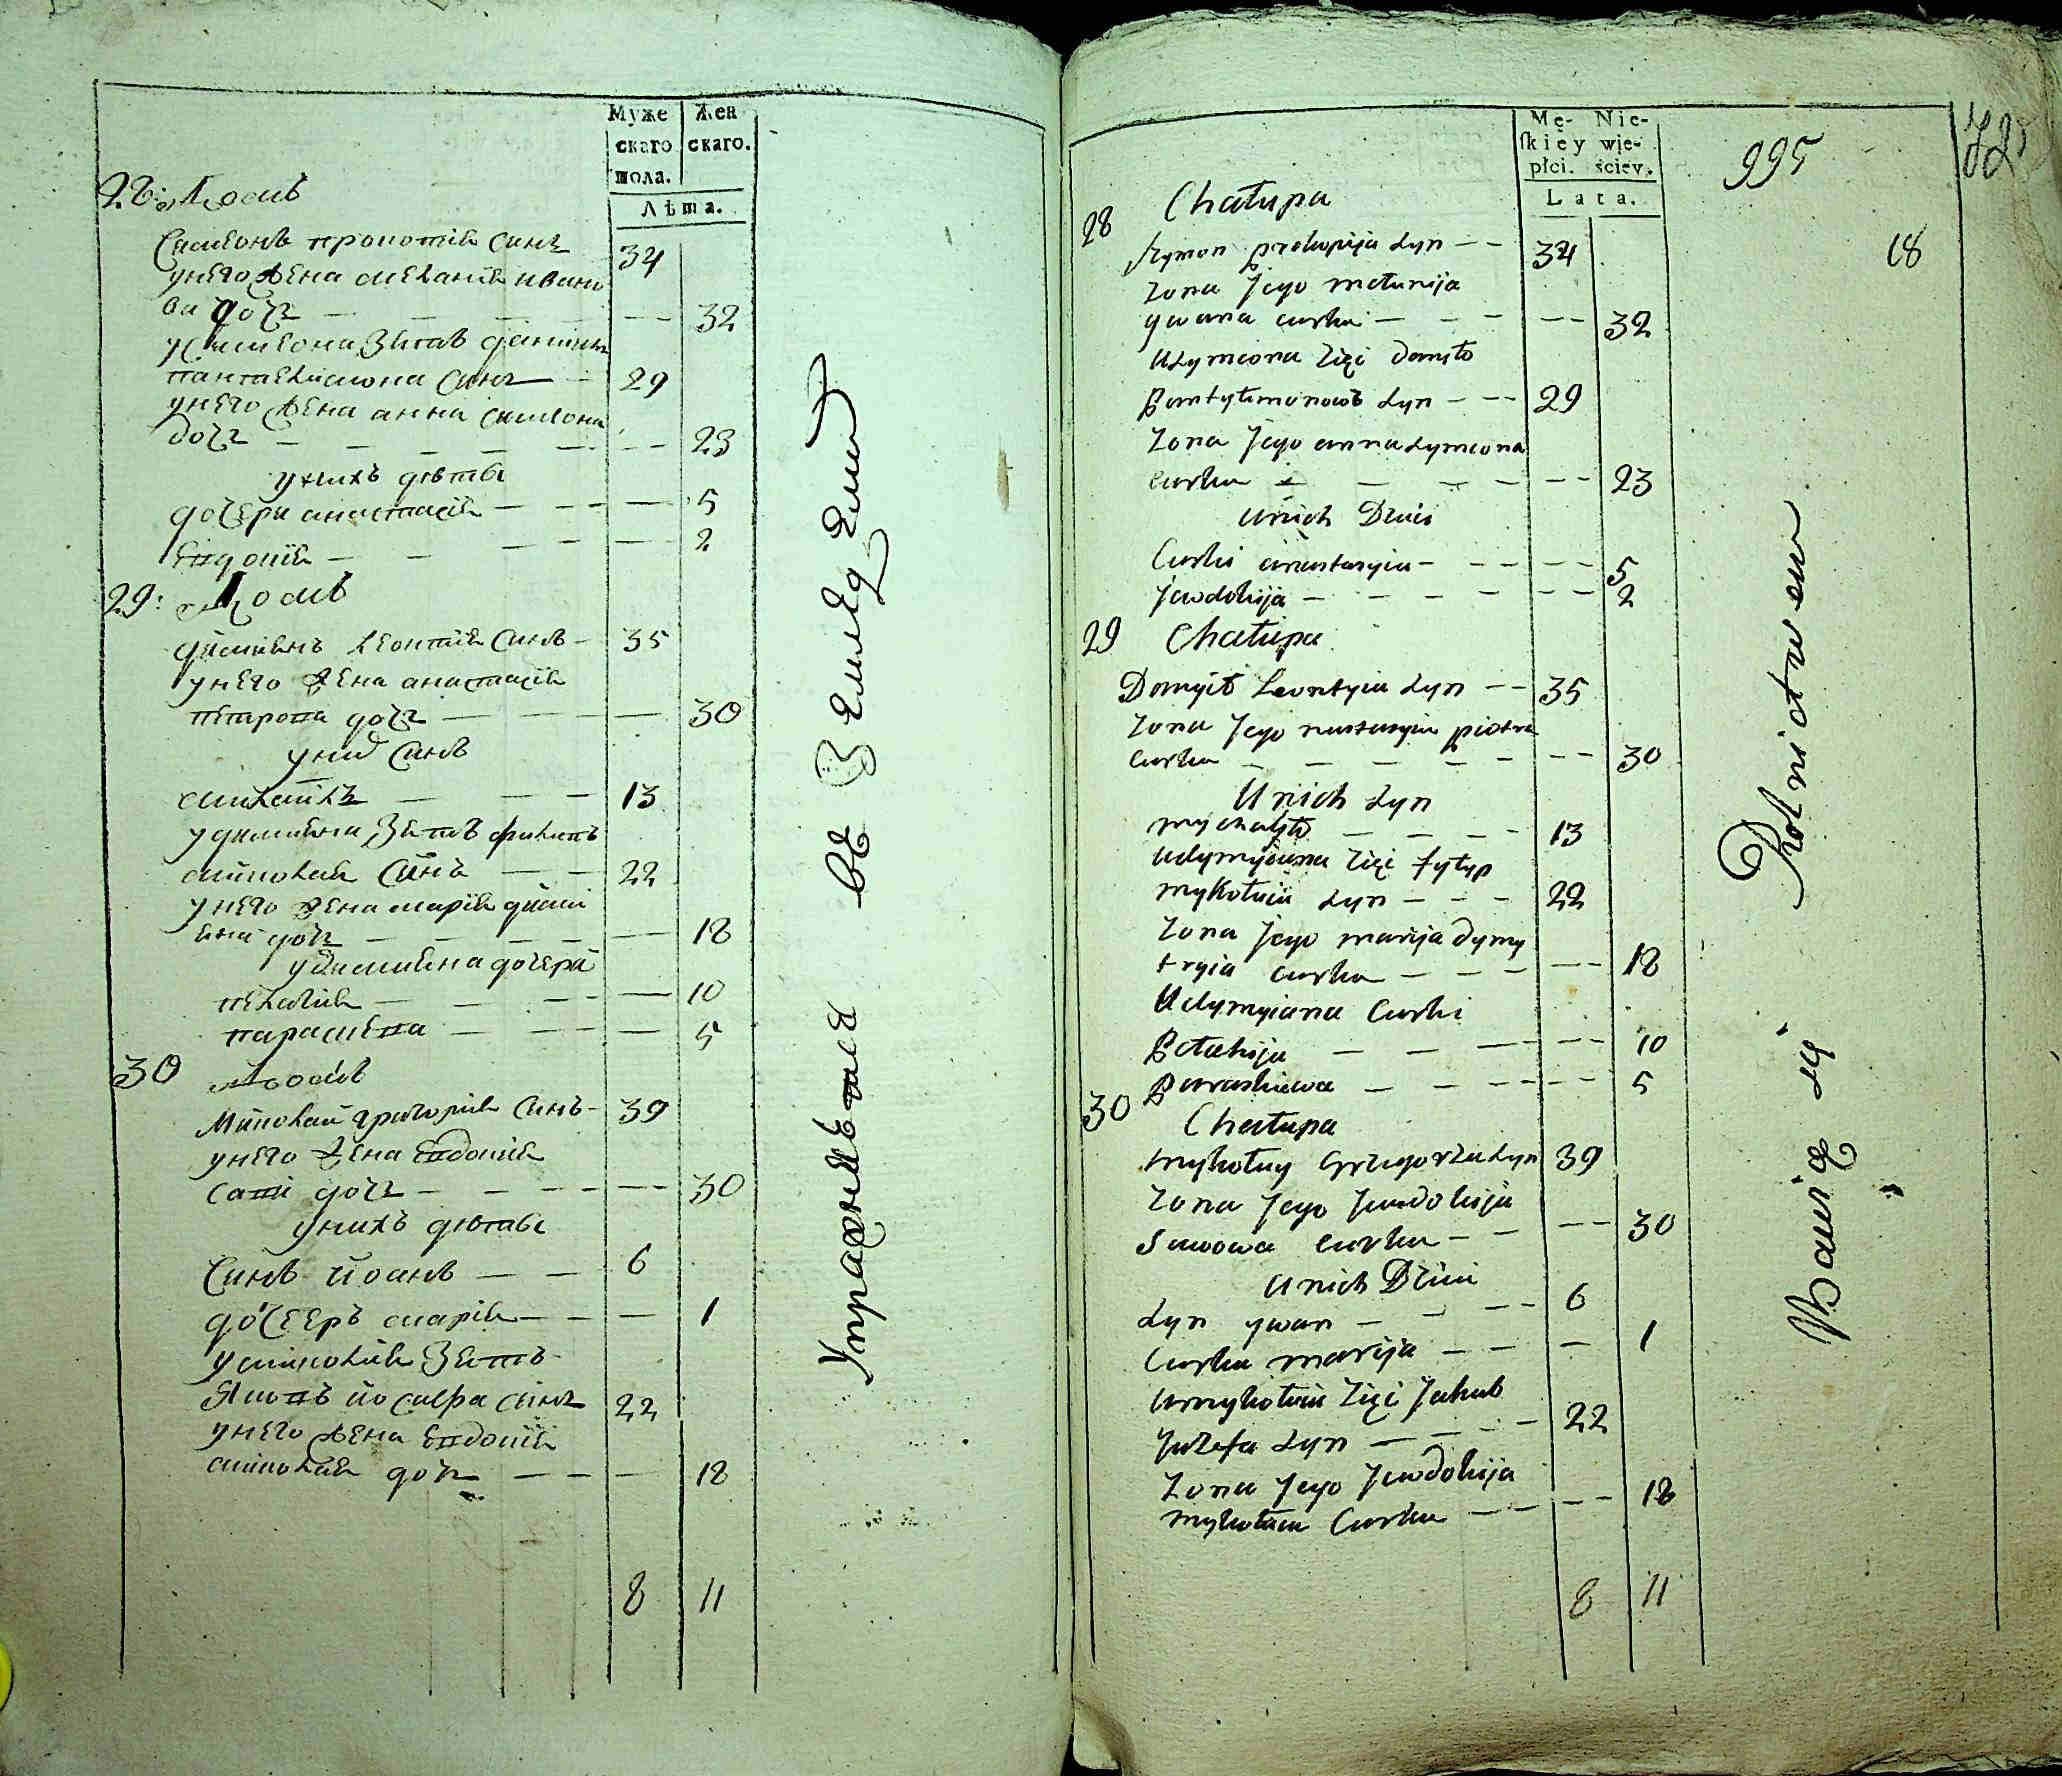 Муже Жен
скаго скаго.
пола.
Лѣта.
28: Домъ
Симеонъ прокопіѧ синъ 34
унего жена меланіѧ ивано
ва дочъ — — — — 32
усимеона зѧть даніилъ
пантелимона синъ — 29
унего жена анна симеона
дочъ — — — — 23
унихъ дѣти
дочери анастасіѧ — — — 5
Евдокіѧ — — — 2
29: Домъ
дамиѧнъ леонтіѧ синъ — 35
унего жена анастасіѧ
петрова дочъ — — — 30
уних синъ
михаилъ — — — 13
удамиѧна зѧть филипъ
николаѧ синъ — — 22
унего жена маріѧ дамі
ѧна дочъ — — — 18
удамиѧна дочери
пелагіѧ — — — 10
параскева — — — 5
30 Домъ
Николай григоріѧ синъ — 39
унего жена Евдокіѧ
сави дочъ — — — 30
унихъ дѣти
синъ иоанъ — — 6
дочеръ маріѧ — — — 1
униколаѧ зѧть
Яковъ иосифа синъ 22
унего жена Евдокіѧ
николаѧ дочъ — — — 18
8 11
Упражнѧетсѧ въ Земледѣлии
Mę- Nie-
ſkiey wie-
płci. ściey.
Lata.
995
18
28 Chałupa
Szymon prokopija syn — — 34
zona jego małanija
ywana curka — — — 32
uszymona zięć danyło
Pantylimonowъ syn — — 29
zona jego anna symeona
curka — — — — 23
unich Dzieci
Curki anastasyia — — — 5
jewdokija — — — — 2
29 Chałupa
Damyań Leontyia syn — — 35
zona jego nastasyia piotra
curka — — — — 30
Unich syn
mychajło — — — 13
udymyiana zięć fylyp
mykołaia syn — — — 22
zona jego marija dymy
tryia curka — — — 18
Udymyiana Curki
Pelahija — — — 10
Paraskiewa — — — 5
30 Chałupa
mykołay Grzegorza syn 39
zona jego jewdokija
Sawowa curka — — — 30
unich Dzieci
syn ywan — — — 6
Curka marija — — — 1
umykołaia zięć jakub
juzefa syn — — — 22
zona jego jewdokija
mykołaia Curka — — — 18
8 11
Bawią się Rolnictwem